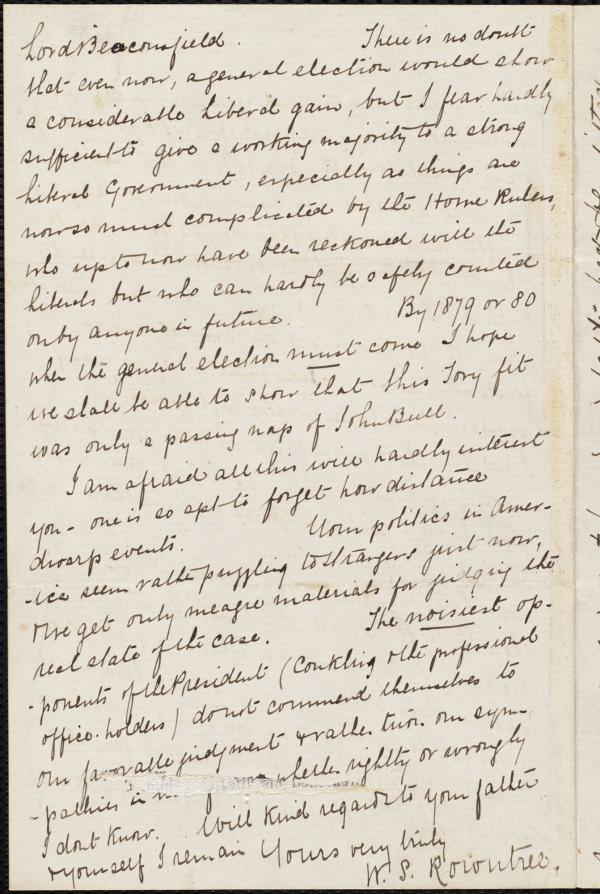 Lord Beaconsfield. There is no doubt
that even now, a general election would show
a considerable liberal gain, but I fear hardly
sufficient to give a working majority to a strong
Liberal Government, especially as things are
now so much complicated by the Home Rulers,
who up to now have been reckoned with the
liberals but who can hardly be safely counted
on by anyone in future. By 1879 or 80
when the general election must come I hope
we shall be able to show that this Tory fit
was only a passing nap of John Bull.
I am afraid all this will hardly interest
you - one is so apt to forget how distance
dwarfs events. Your politics in Amer-
-ica seem rather puzzling to strangers just now,
& we get only meagre materials for judging the
real state of the case. The noisiest op-
-ponents of the President (Conkling & the professional
office-holders) do not commend themselves to
our favorable judgment & rather turn our sym-
-pathies in whether rightly or wrongly
I dont know. With kind regards to your father
& yourself I remain Yours very truly
W. S. Rowntree.